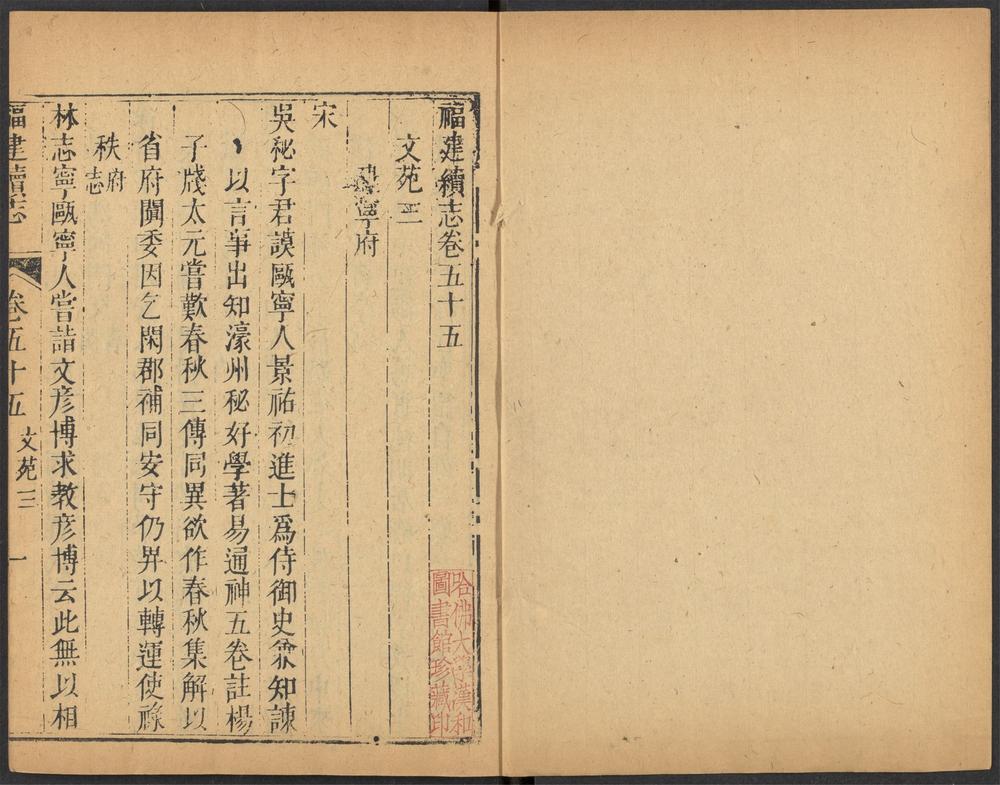 福建續志卷五十五
文苑三
建寧府
宋
吳秘字君謨甌寧人景祐初進士爲侍御史兼知諫
以言事出知濠州秘好學著易通神五卷註楊
子牋太元嘗歎春秋三傳同異欲作春秋集解以
省府闕委因乞閑郡補同安守仍畀以轉運使祿
秩府志
林志寧甌寧人嘗詣文彦博求教彦博云此無以相
福建續志
卷五十五
文苑三
一
哈佛大學漢和
圖書館珍藏印